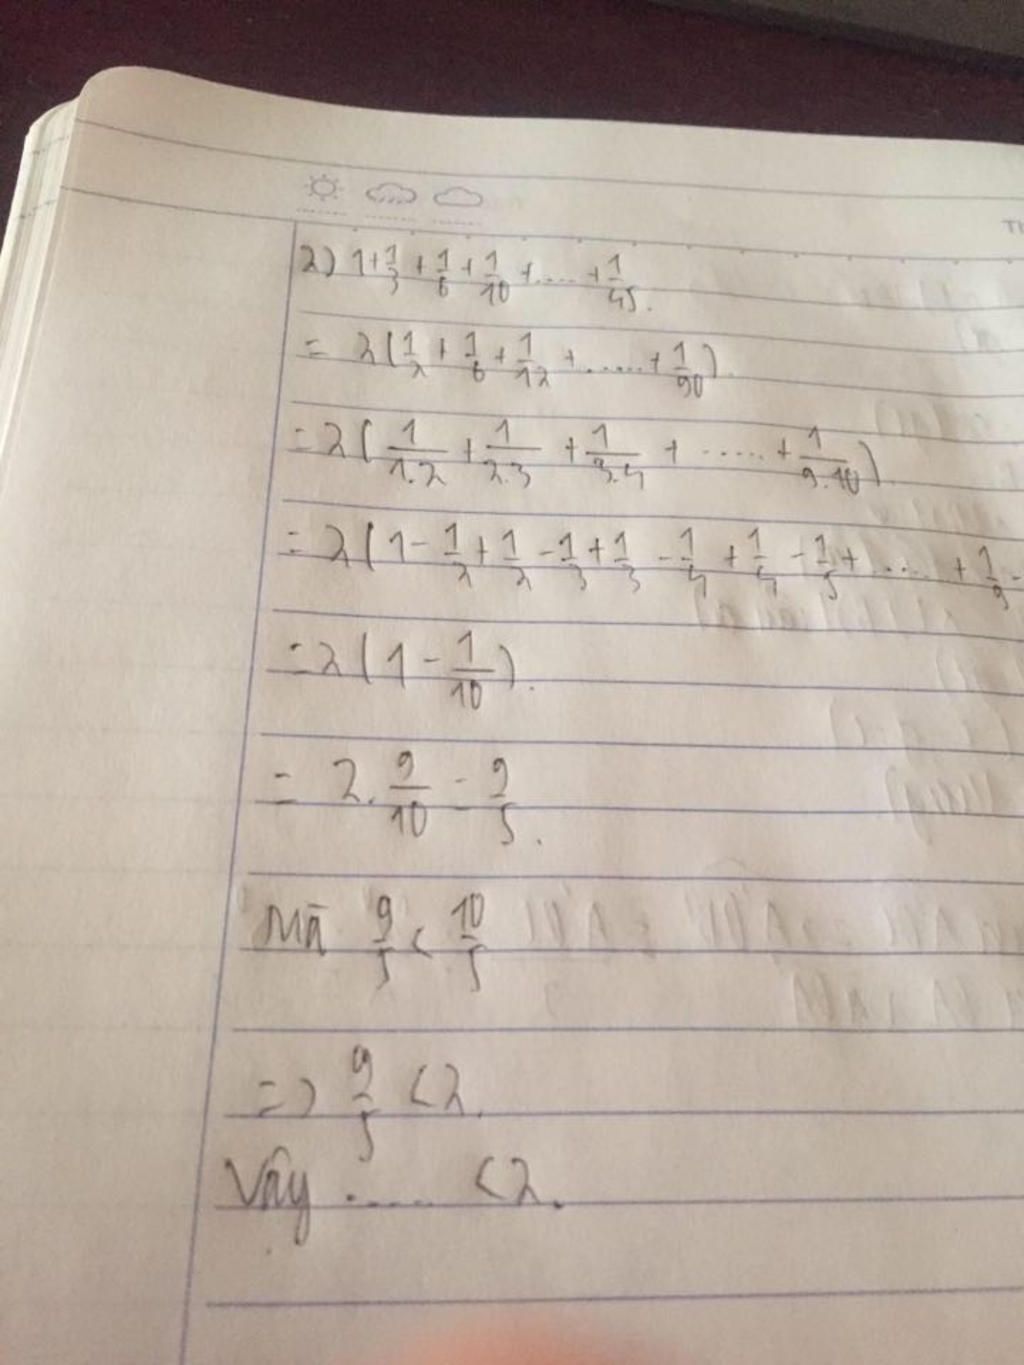 TI
2) 1 + 1/3 + 1/6 + 1/10 + .... + 1/45.
= 2(1/2 + 1/6 + 1/12 + ...... + 1/90).
= 2(1/1.2 + 1/2.3 + 1/3.4 + ..... + 1/9.10)
= 2(1 - 1/2 + 1/2 - 1/3 + 1/3 - 1/4 + 1/4 - 1/5 + .... + 1/9 -
= 2(1 - 1/10).
= 2. 9/10 = 9/5.
Mà 9/5 < 10/5
=> 9/5 < 2.
Vậy ..... < 2.